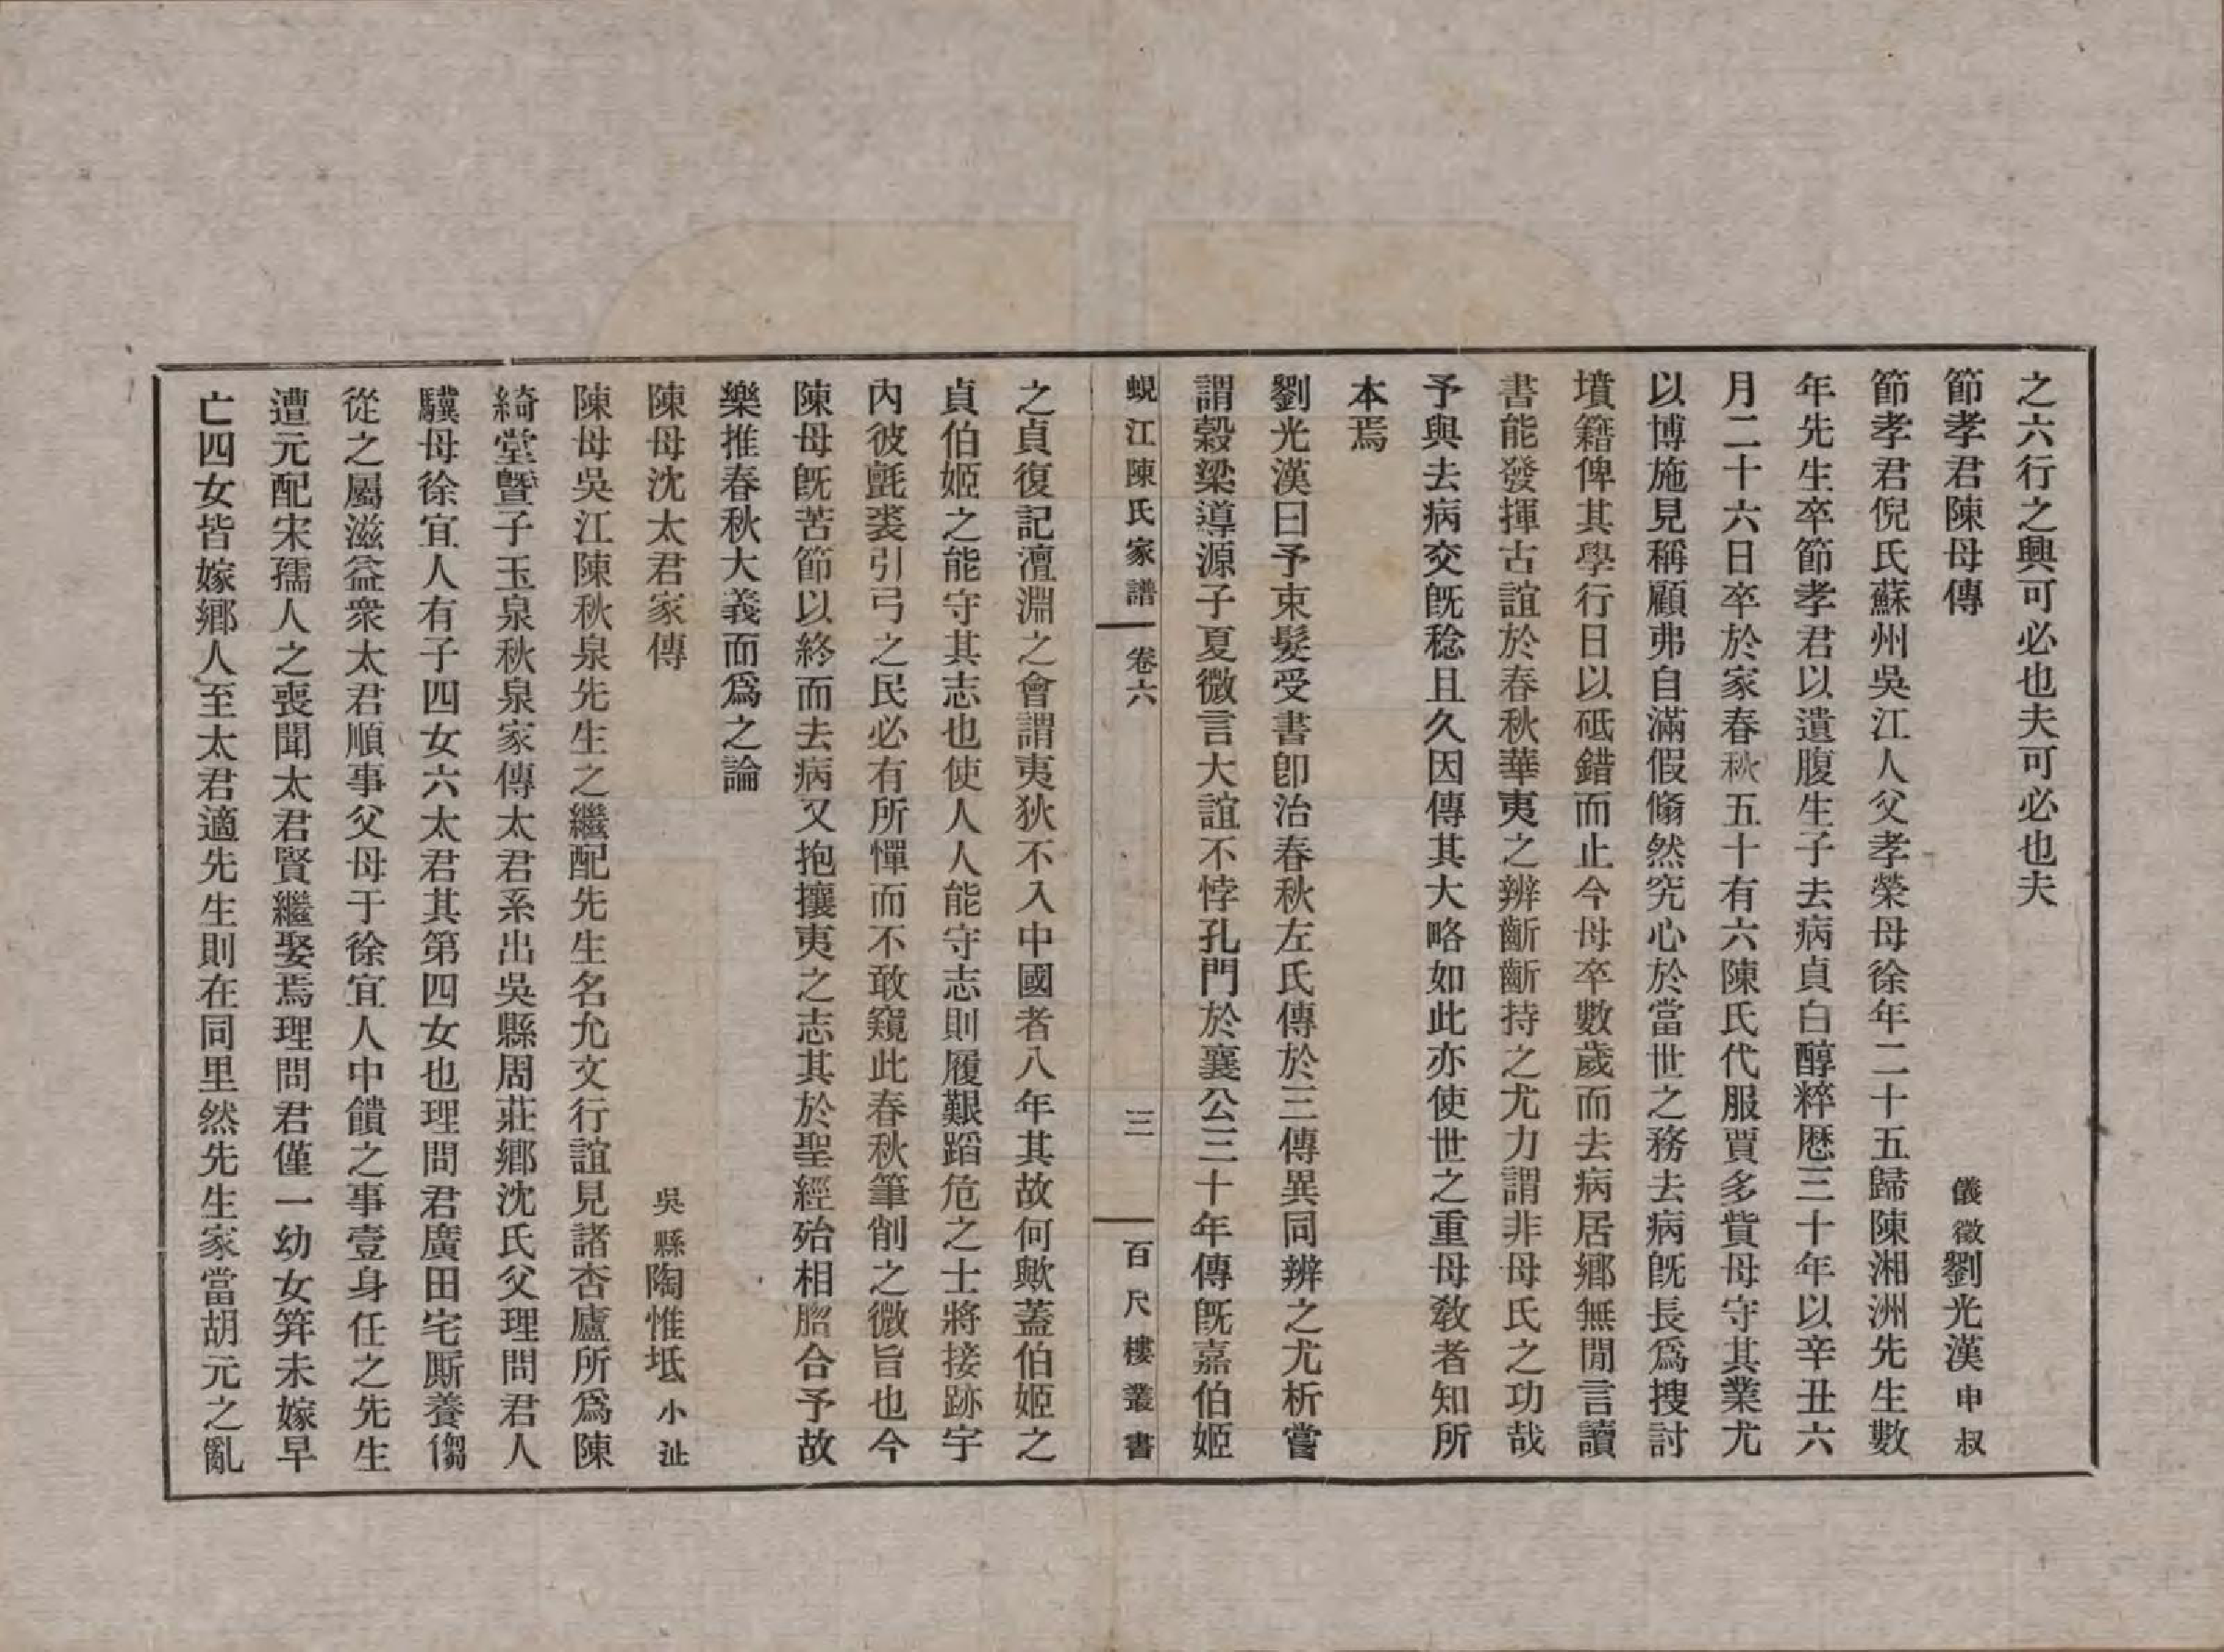 之六行之興可必也夫可必也夫
節孝君陳母傳　儀徵劉光漢申叔
節孝君倪氏蘇州吳江人父孝榮母徐年二十五歸陳湘洲先生數
年先生卒節孝君以遺腹生子去病貞白醇粹歷三十年以辛丑六
月二十六日卒於家春秋五十有六陳氏代服賈多貲母守其業尤
以博施見稱顧弗自滿假翛然究心於當世之務去病旣長爲搜討
墳籍俾其學行日以砥錯而止今母卒數歲而去病居鄕無閒言讀
書能發揮古誼於春秋華夷之辨齗齗持之尤力謂非母氏之功哉
予與去病交旣稔且久因傳其大略如此亦使世之重母敎者知所
本焉
劉光漢曰予束髮受書卽治春秋左氏傳於三傳異同辨之尤析嘗
謂穀梁導源子夏微言大誼不悖孔門於襄公三十年傳旣嘉伯姬
蜆江陳氏家譜　卷六　三　百尺樓叢書
之貞復記澶淵之會謂夷狄不入中國者八年其故何歟蓋伯姬之
貞伯姬之能守其志也使人人能守志則履艱蹈危之士將接跡宇
內彼氈裘引弓之民必有所憚而不敢窺此春秋筆削之微旨也今
陳母旣苦節以終而去病又抱攘夷之志其於聖經殆相脗合予故
樂推春秋大義而爲之論
陳母沈太君家傳　吳縣陶惟坻小沚
陳母吳江陳秋泉先生之繼配先生名允文行誼見諸杏廬所爲陳
綺堂曁子玉泉秋泉家傳太君系出吳縣周莊鄕沈氏父理問君人
驥母徐宜人有子四女六太君其第四女也理問君廣田宅厮養傭
從之屬滋益衆太君順事父母于徐宜人中饋之事壹身任之先生
遭元配宋孺人之喪聞太君賢繼娶焉理問君僅一幼女笄未嫁早
亡四女皆嫁鄕人至太君適先生則在同里然先生家當胡元之亂